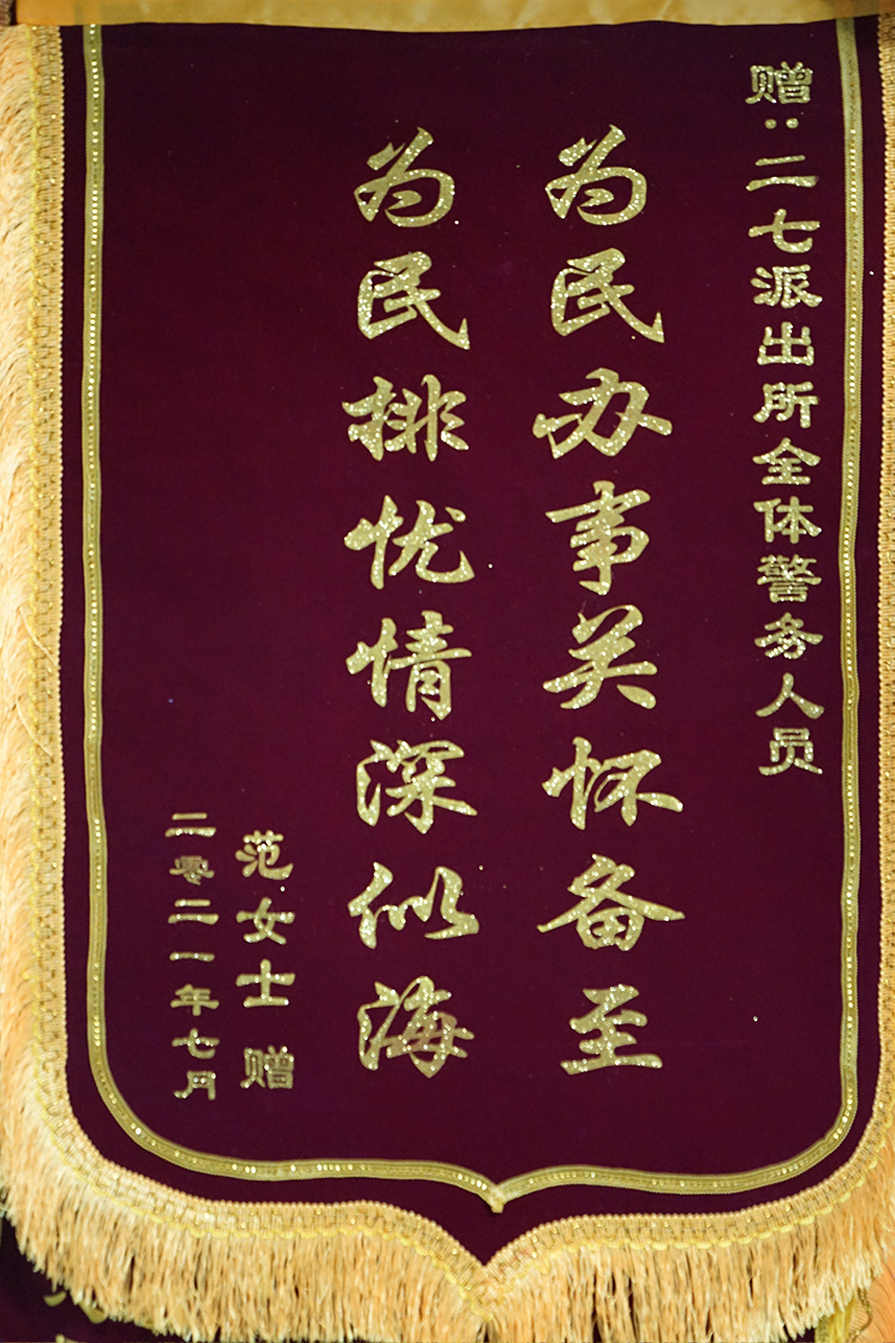 赠:二七派出所全体警务人员
为民办事关怀备至
为民排忧情深似海
范女士 赠
二零二一年七月